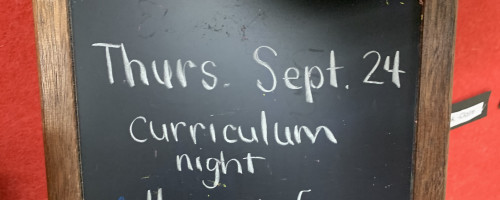 Thurs. Sept. 24
curriculum
night